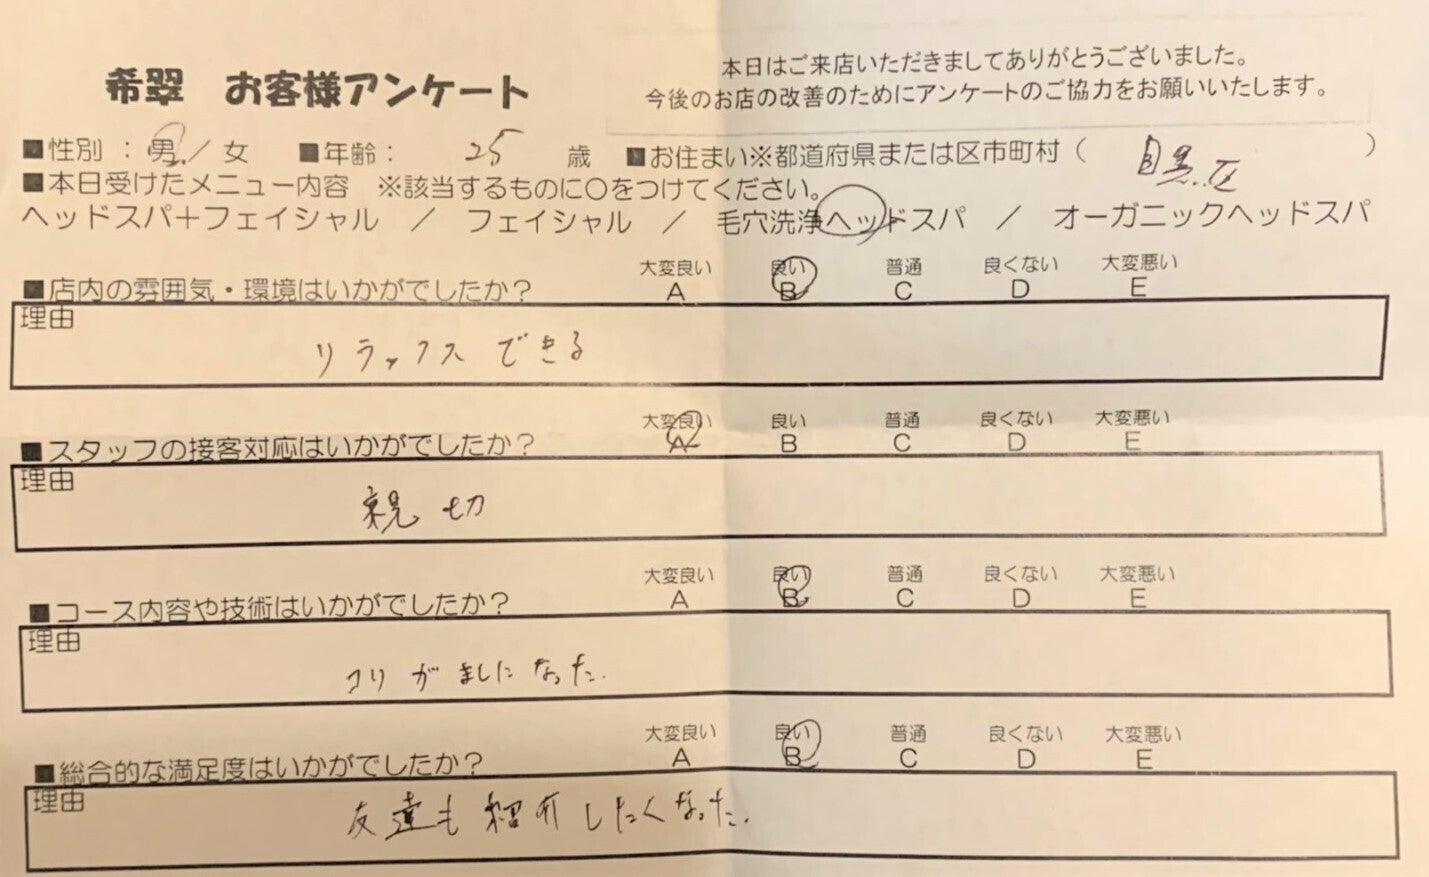 希翠 お客様アンケート
本日はご来店いただきましてありがとうございました。
今後のお店の改善のためにアンケートのご協力をお願いいたします。
■性別 : 男 / 女 ■年齢 : 25 歳 ■お住まい※都道府県または区市町村 ( 目黒区 )
■本日受けたメニュー内容 ※該当するものに〇をつけてください。
ヘッドスパ+フェイシャル / フェイシャル / 毛穴洗浄ヘッドスパ / オーガニックヘッドスパ
大変良い 良い 普通 良くない 大変悪い
■店内の雰囲気・環境はいかがでしたか? A B C D E
理由
リラックスできる
大変良い 良い 普通 良くない 大変悪い
■スタッフの接客対応はいかがでしたか? A B C D E
理由
親切
大変良い 良い 普通 良くない 大変悪い
■コース内容や技術はいかがでしたか? A B C D E
理由
コリがましになった.
大変良い 良い 普通 良くない 大変悪い
■総合的な満足度はいかがでしたか? A B C D E
理由
友達も紹介したくなった.